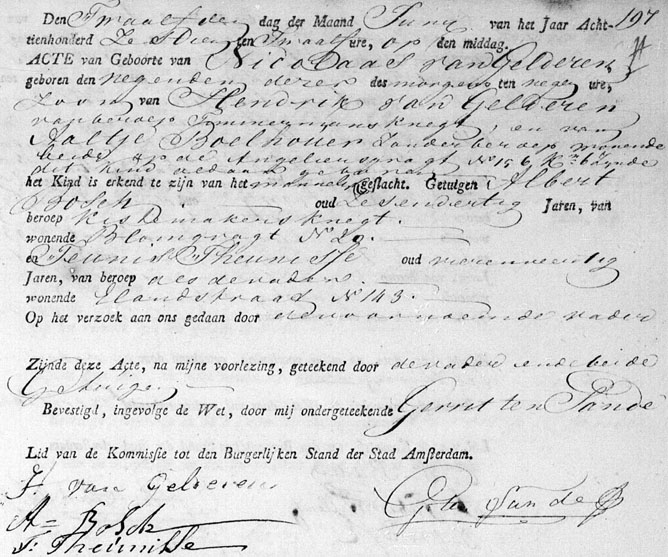 197
Den Twaalfden dag der Maand Juny van het Jaar Acht-
tienhonderd Zestien ten Twaalf ure, op den middag.
ACTE van Geboorte van Nicolaas van Gelderen
geboren den negenden dezer des morgens ten negen ure,
zoon van Hendrik van Gelderen
van beroep Timmermansknegt, en van
Aaltje Boelhouer zonder beroep wonende
beide op de Angeliersgragt N 156 Kn. bynde
dit kind aldaar geboren
het Kind is erkend te zijn van het mannelyk geslacht. Getuigen Albert
Bosch oud Zesendertig Jaren, van
beroep Kistemakersknegt.
wonende Blomgragt N 20.
en Teunis Theunisse oud vierenveertig
Jaren, van beroep als de vader
wonende Elandstraat N 143.
Op het verzoek aan ons gedaan door de voornoemde vader
Zijnde deze Acte, na mijne voorlezing, geteekend door de vader ende beide
Getuigen
Bevestigd, ingevolge de Wet, door mij ondergeteekende Gerrit ten Sande
Lid van de Kommissie tot den Burgerlijken Stand der Stad Amsterdam.
H. van Gelderen
A= Bosch
T. Theunisse